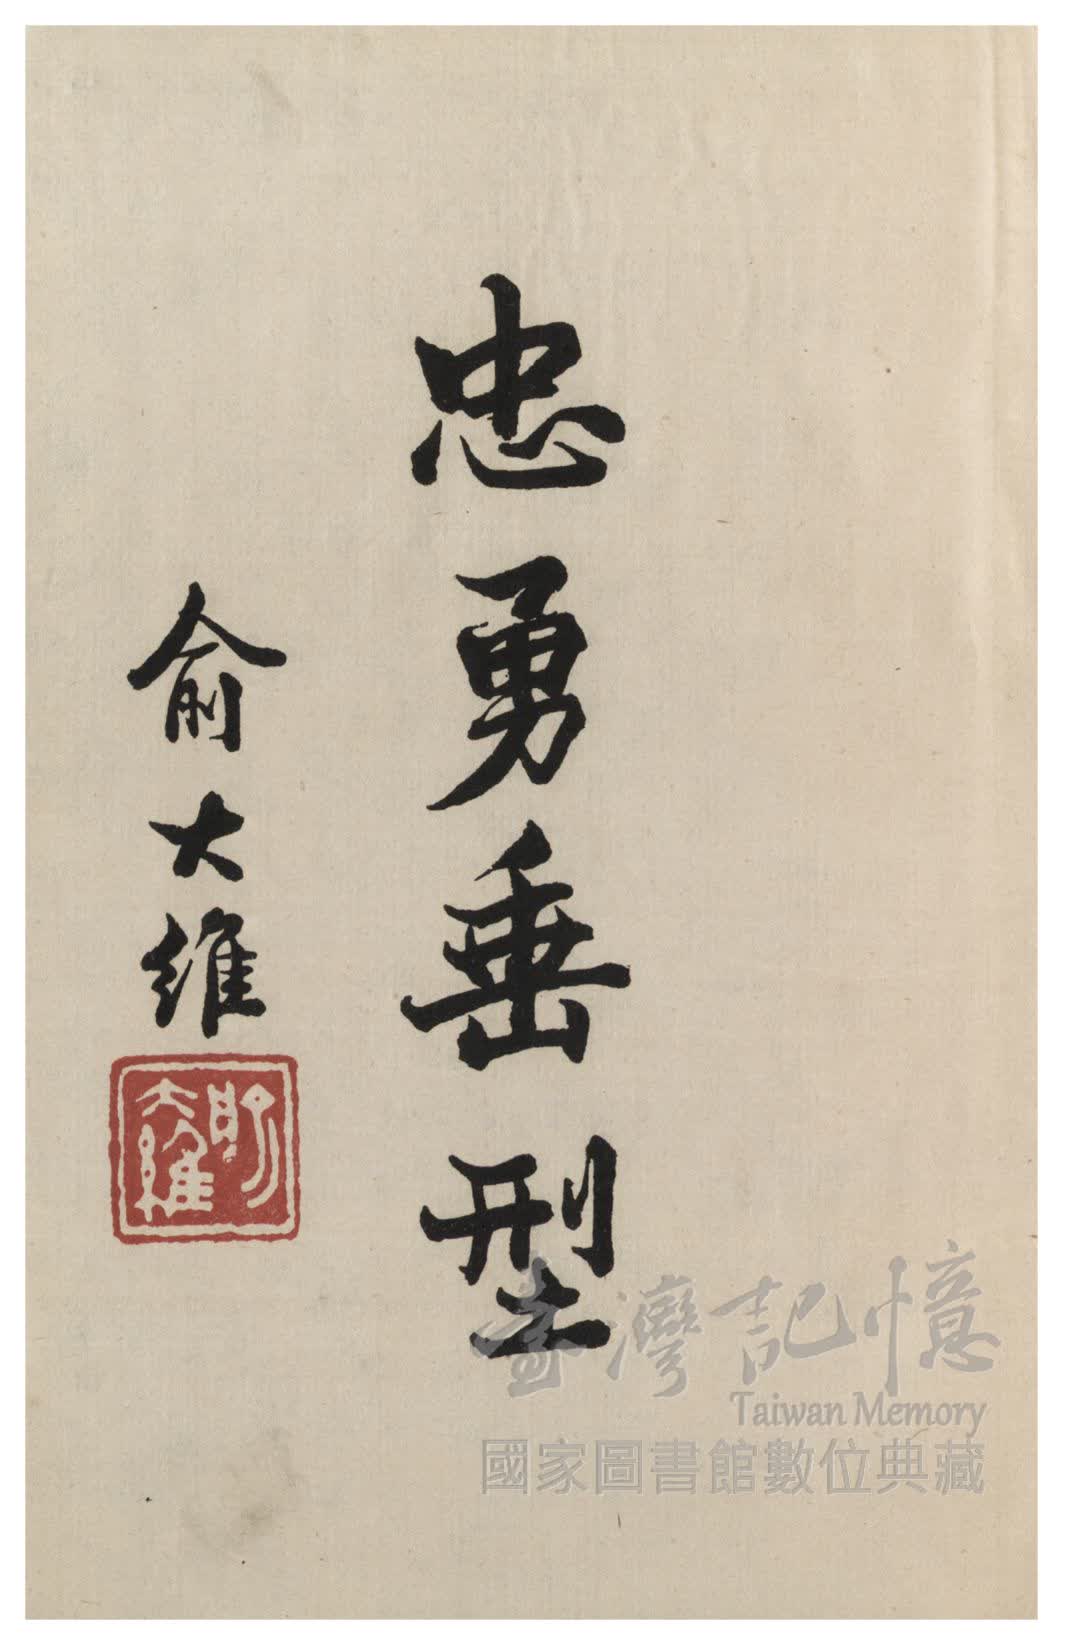 忠勇垂型
俞大維
俞大維
臺灣記憶
Taiwan Memory
國家圖書館數位典藏